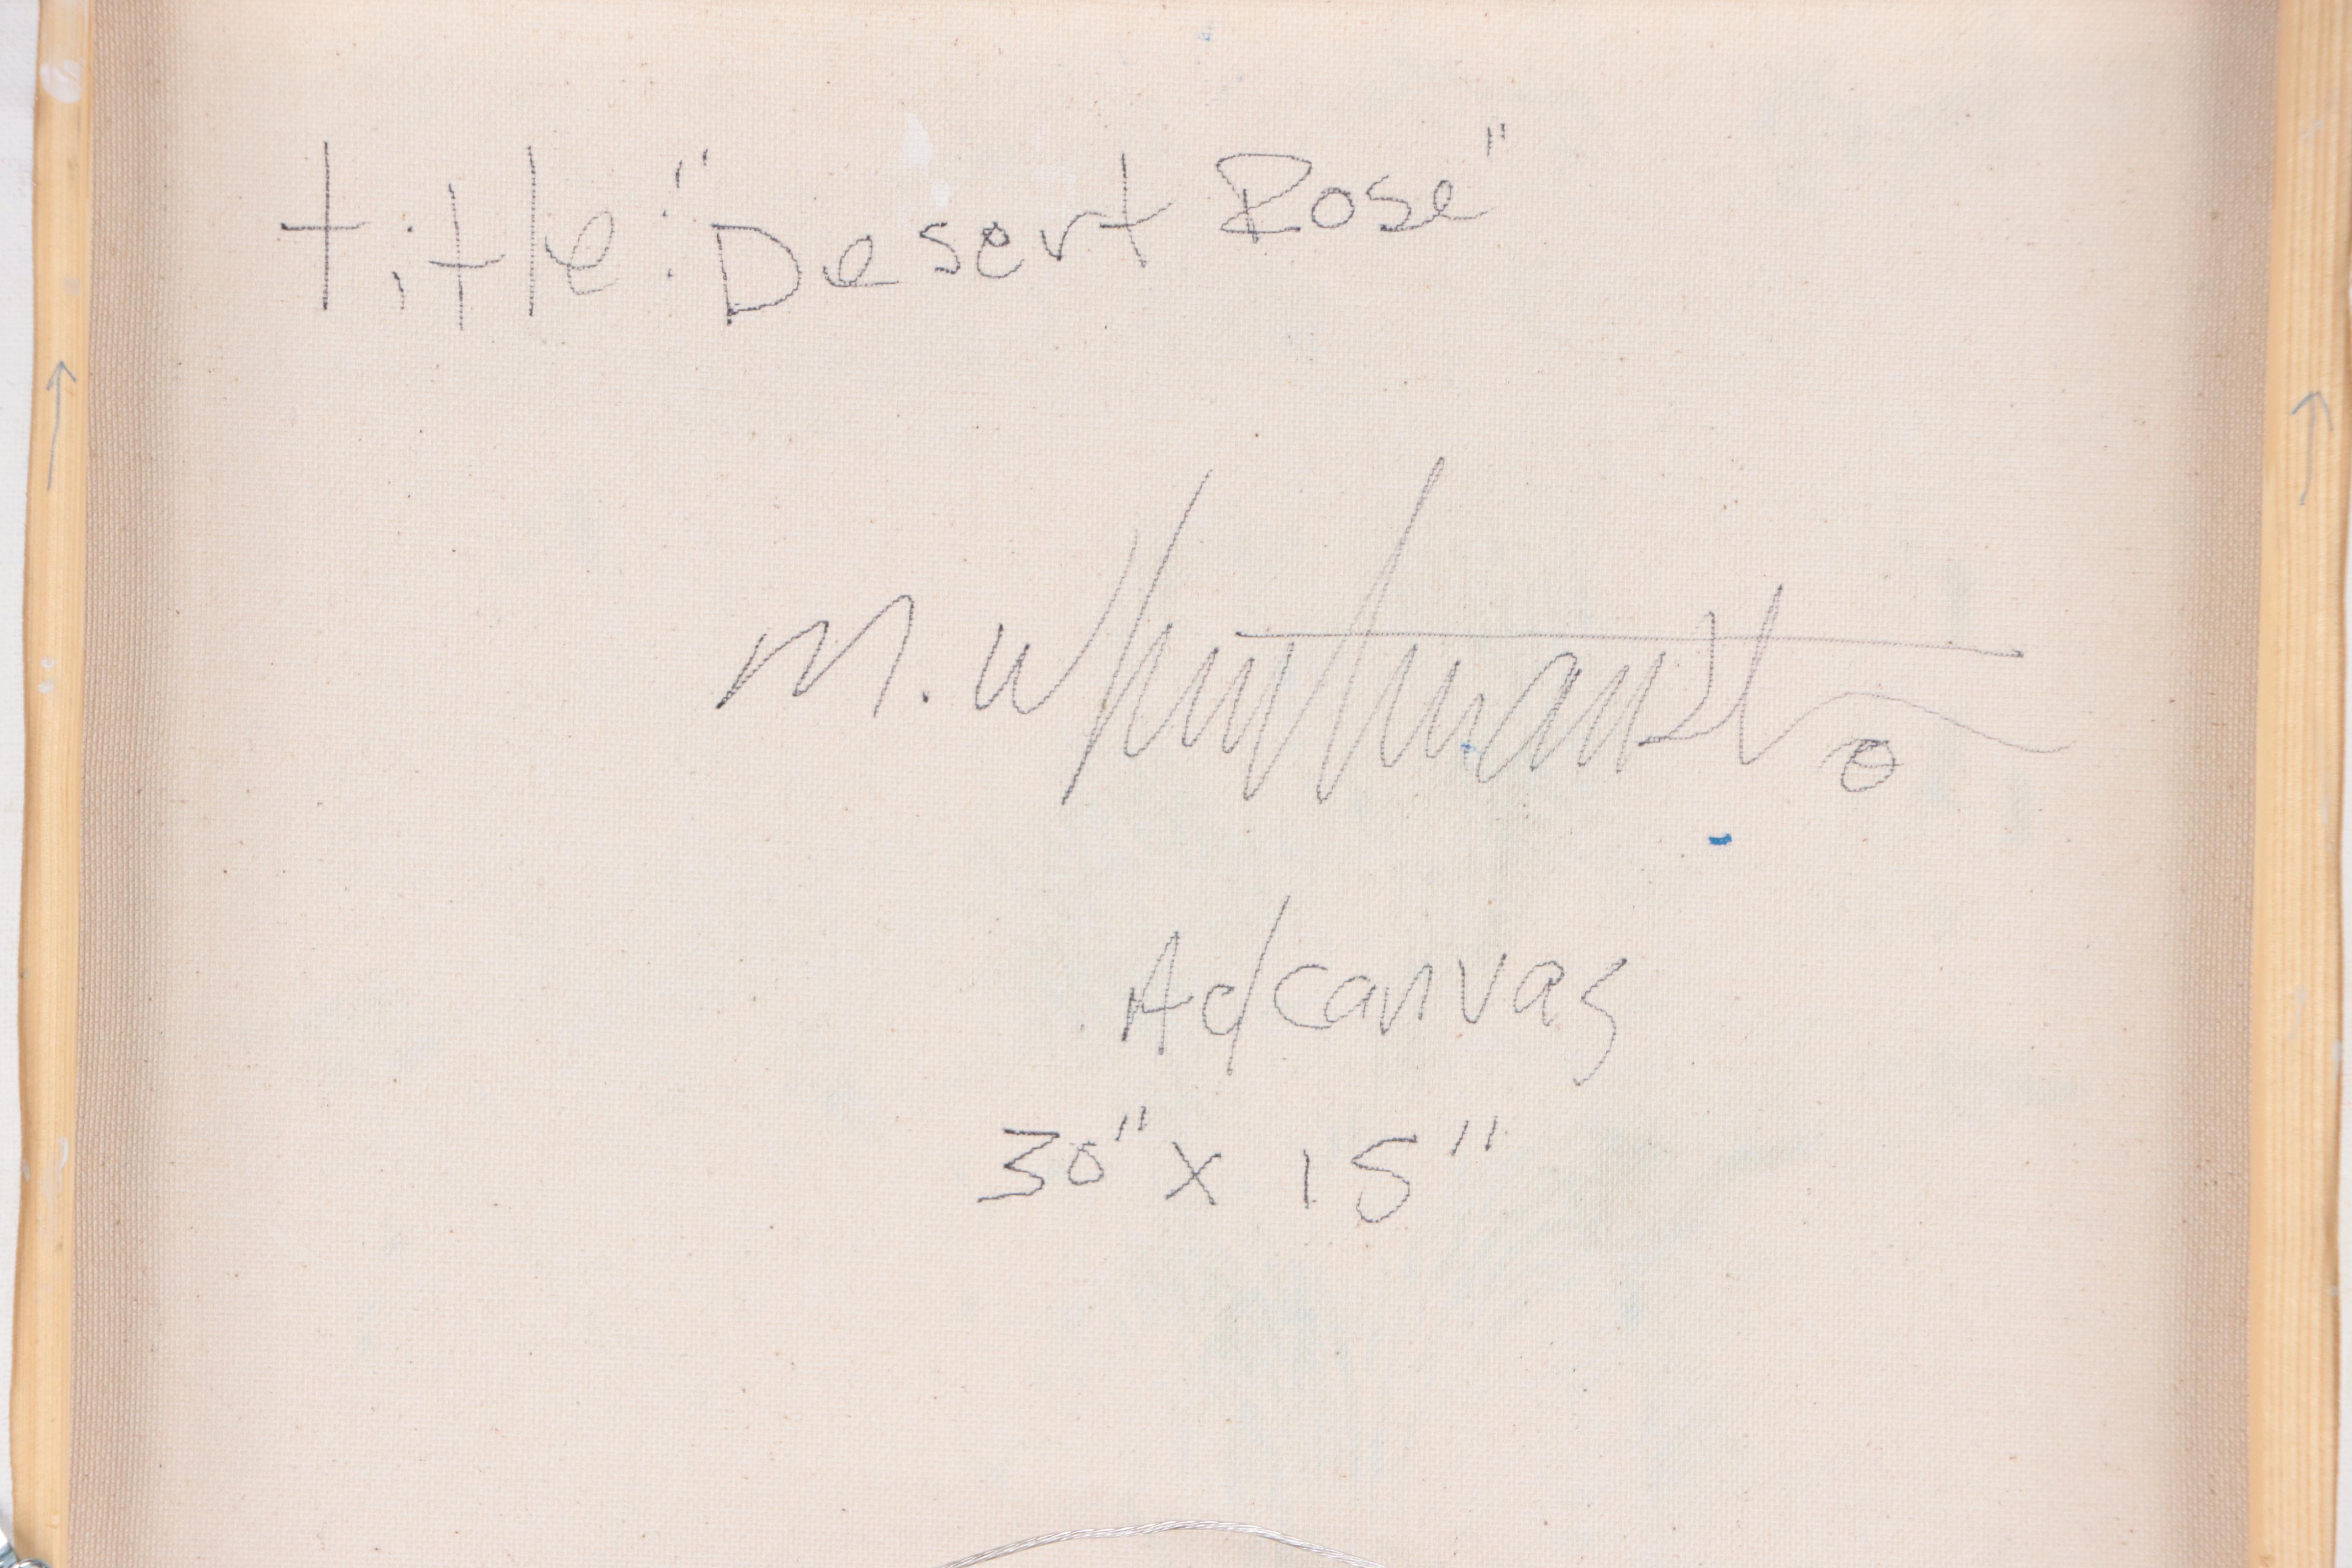 title: "Desert Rose"
M.
Ac/canvas
30" x 15"